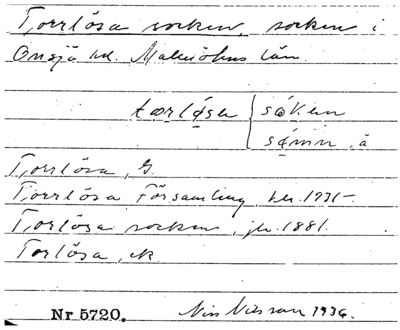 Torrlösa socken, socken i
Onsjö hd. Malmöhus län
tɑrlǫ̈sa { sǫ́kan
sǫ́mn, ä
Torrlösa, G.
Torrlösa församling, kbr. 1931-
Torrlösa socken, jb. 1881.
Torlösa, ek
Nr 5720. Nils Nilsson 1936.